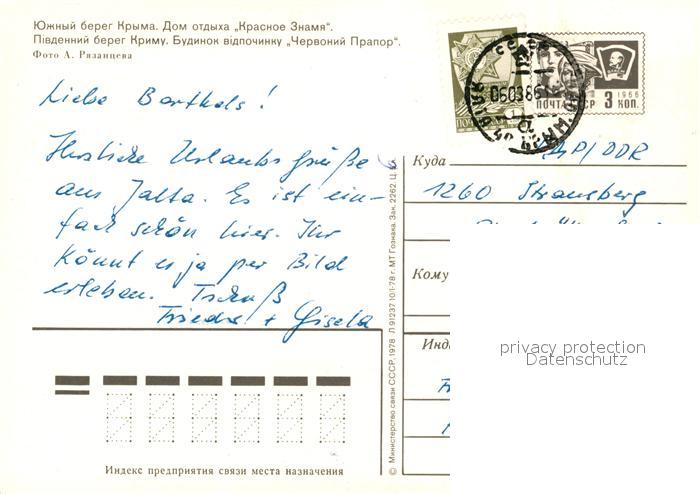 Южный берег Крыма. Дом отдыха „Красное Знамя“.
Південний берег Криму. Будинок відпочинку „Червоний Прапор“.
Фото А. Рязанцева
Liebe Barthels!
Herzliche Urlaubsgrüße
aus Jalta. Es ist ein-
fach schön hier. Ihr
könnt es ja per Bild
erleben. Tschüß
+ Gisela
ПОЧТА СССР 3 КОП.
1966
Куда ГДР/DDR
1260 Strausberg
Кому
privacy protection
Datenschutz
Индекс предприятия связи места назначения
© Министерство связи СССР, 1978 Л 91237 10/I-78 г. МТ Гознака. Зак. 2262. Ц.